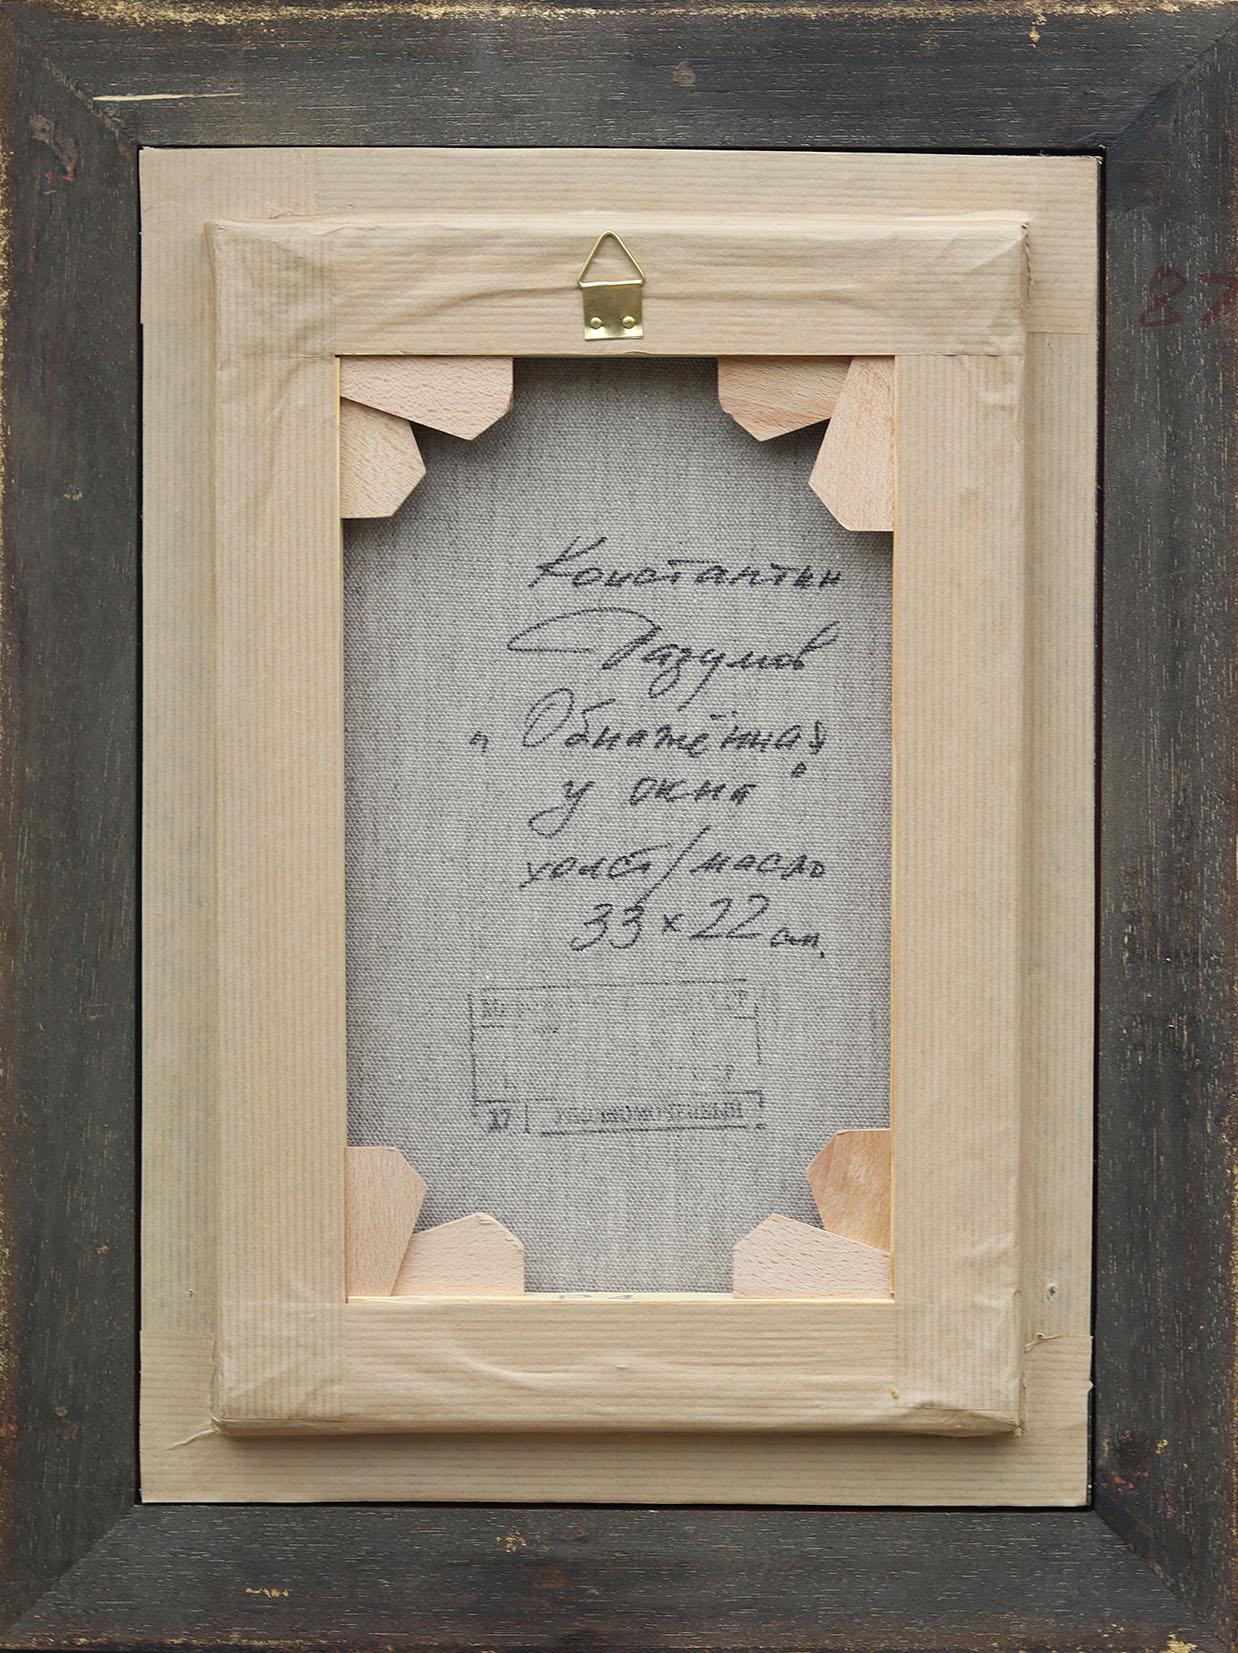 Константин
Разумов
„Обнажённая
у окна"
холст/масло
33 х 22 см.
87